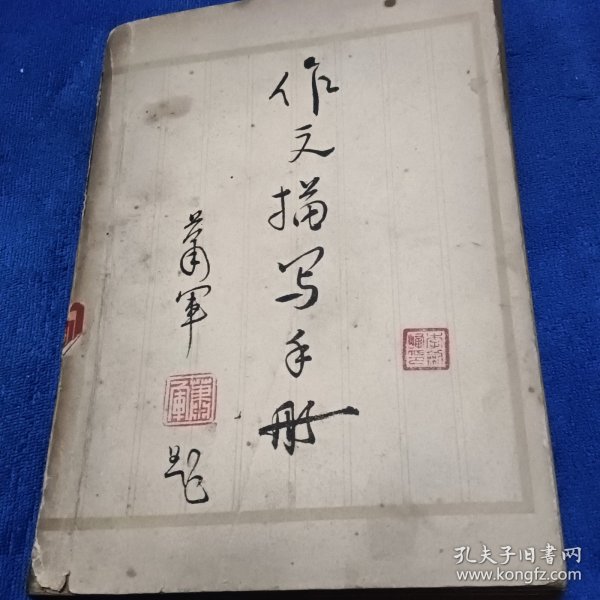 作文描写手册
萧军
萧军
题
孔夫子旧书网
www.kongfz.com